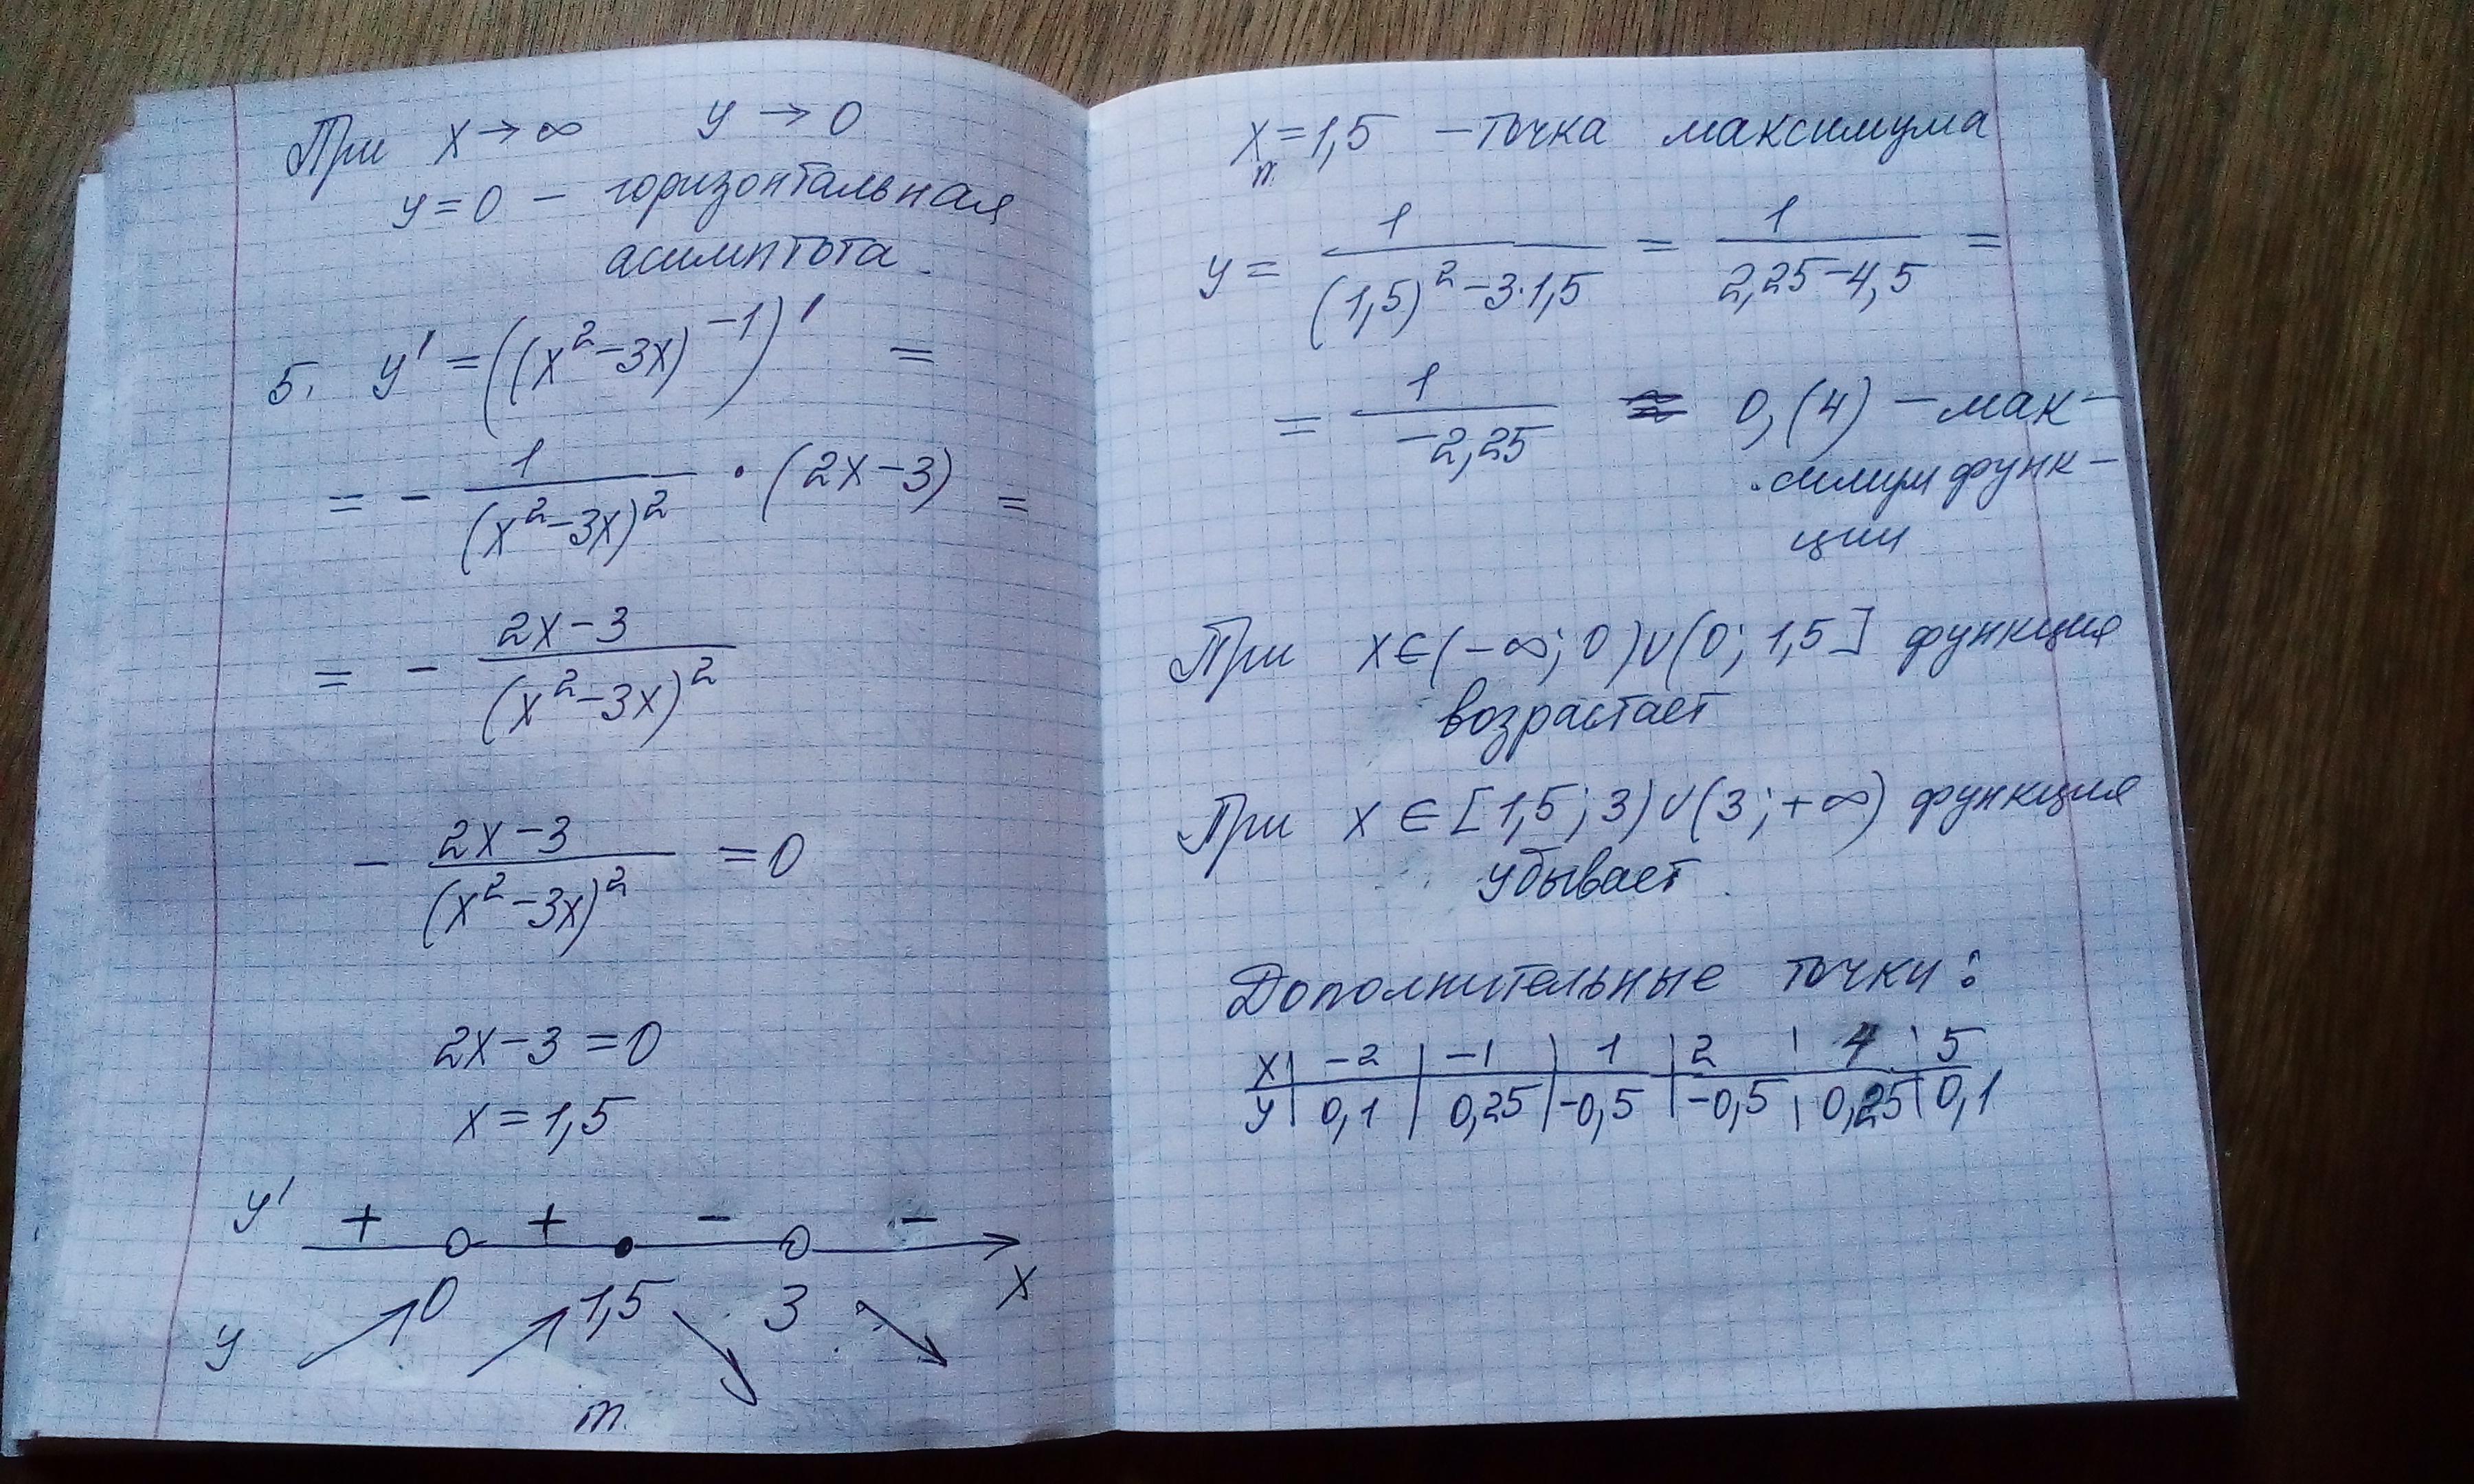 При x→∞ y→0
y=0 – горизонтальная
асимптота.
5. y' = ((x²–3x)⁻¹)' =
= – 1/(x²–3x)² · (2x–3) =
= – (2x–3)/(x²–3x)²
– (2x–3)/(x²–3x)² = 0
2x–3=0
x=1,5
y' + + – –
0 1,5 3 x
y
m
x = 1,5 – точка максимума
m
y = 1/((1,5)²–3·1,5) = 1/(2,25–4,5) =
= 1/(–2,25) 0,(4) – мак-
симум функ-
ции
При x∈(–∞; 0)∪(0; 1,5] функция
возрастает
При x∈[1,5; 3)∪(3; +∞) функция
убывает
Дополнительные точки:
x | –2 | –1 | 1 | 2 | 4 | 5
y | 0,1 | 0,25 | –0,5 | –0,5 | 0,25 | 0,1